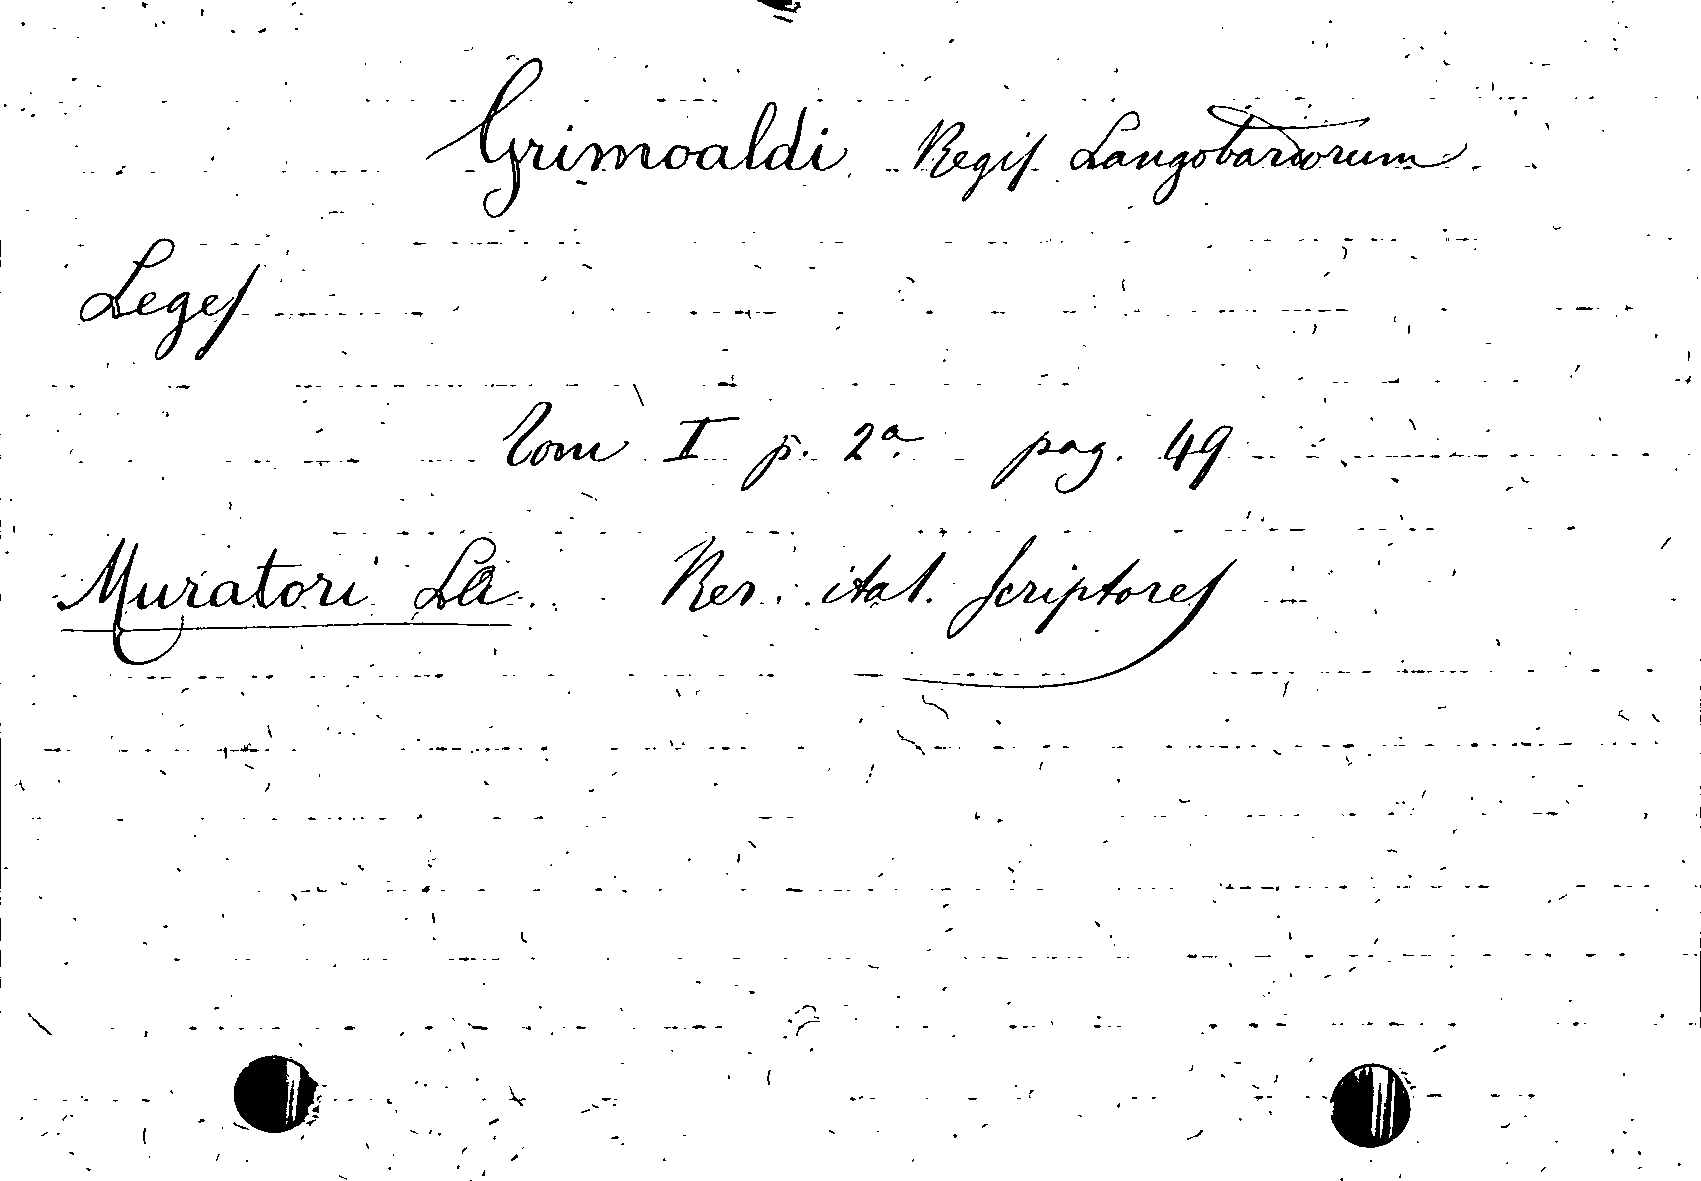 Grimoaldi Regis Langobardorum
Leges
Tom I p. 2a. pag. 49
Muratori La. Rer. ital. Scriptores